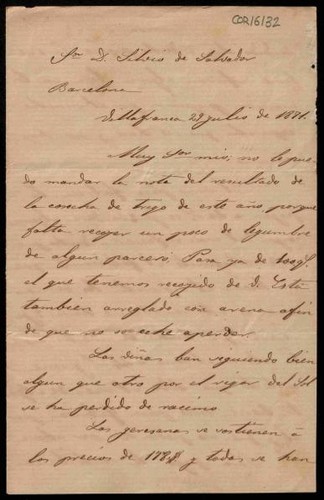 COR/6/32
Sr. D. Silvio de Salvador
Barcelona
Villafranca 29 julio de 1891.
Muy Sor mio; no le pue-
do mandar la nota del resultado de
la cosecha de trigo de este año porque
falta recoger un poco de legumbre
de algun parcero. Pasa ya de 100 q.
el que tenemos recogido de D. Esta
tambien arreglado con arena afin
de que no se eche aperder.
Las viñas ban siguiendo bien
algun que otro por el rigor del Sol
se ha perdido de racimo
Las se sostienen á
los precios de y todas se han